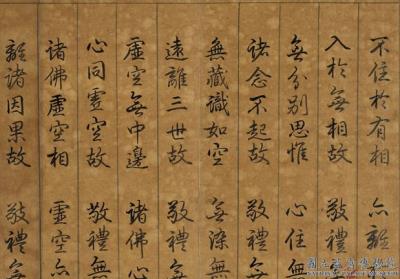 不住於有相 亦離
入於無相故 敬禮無
無分別思惟 心住無
諸念不起故 敬禮無
無藏識如空 無染無
遠離三世故 敬禮無
虛空無中邊 諸佛心
心同虛空故 敬禮無
諸佛虛空相 虛空亦
離諸因果故 敬禮無